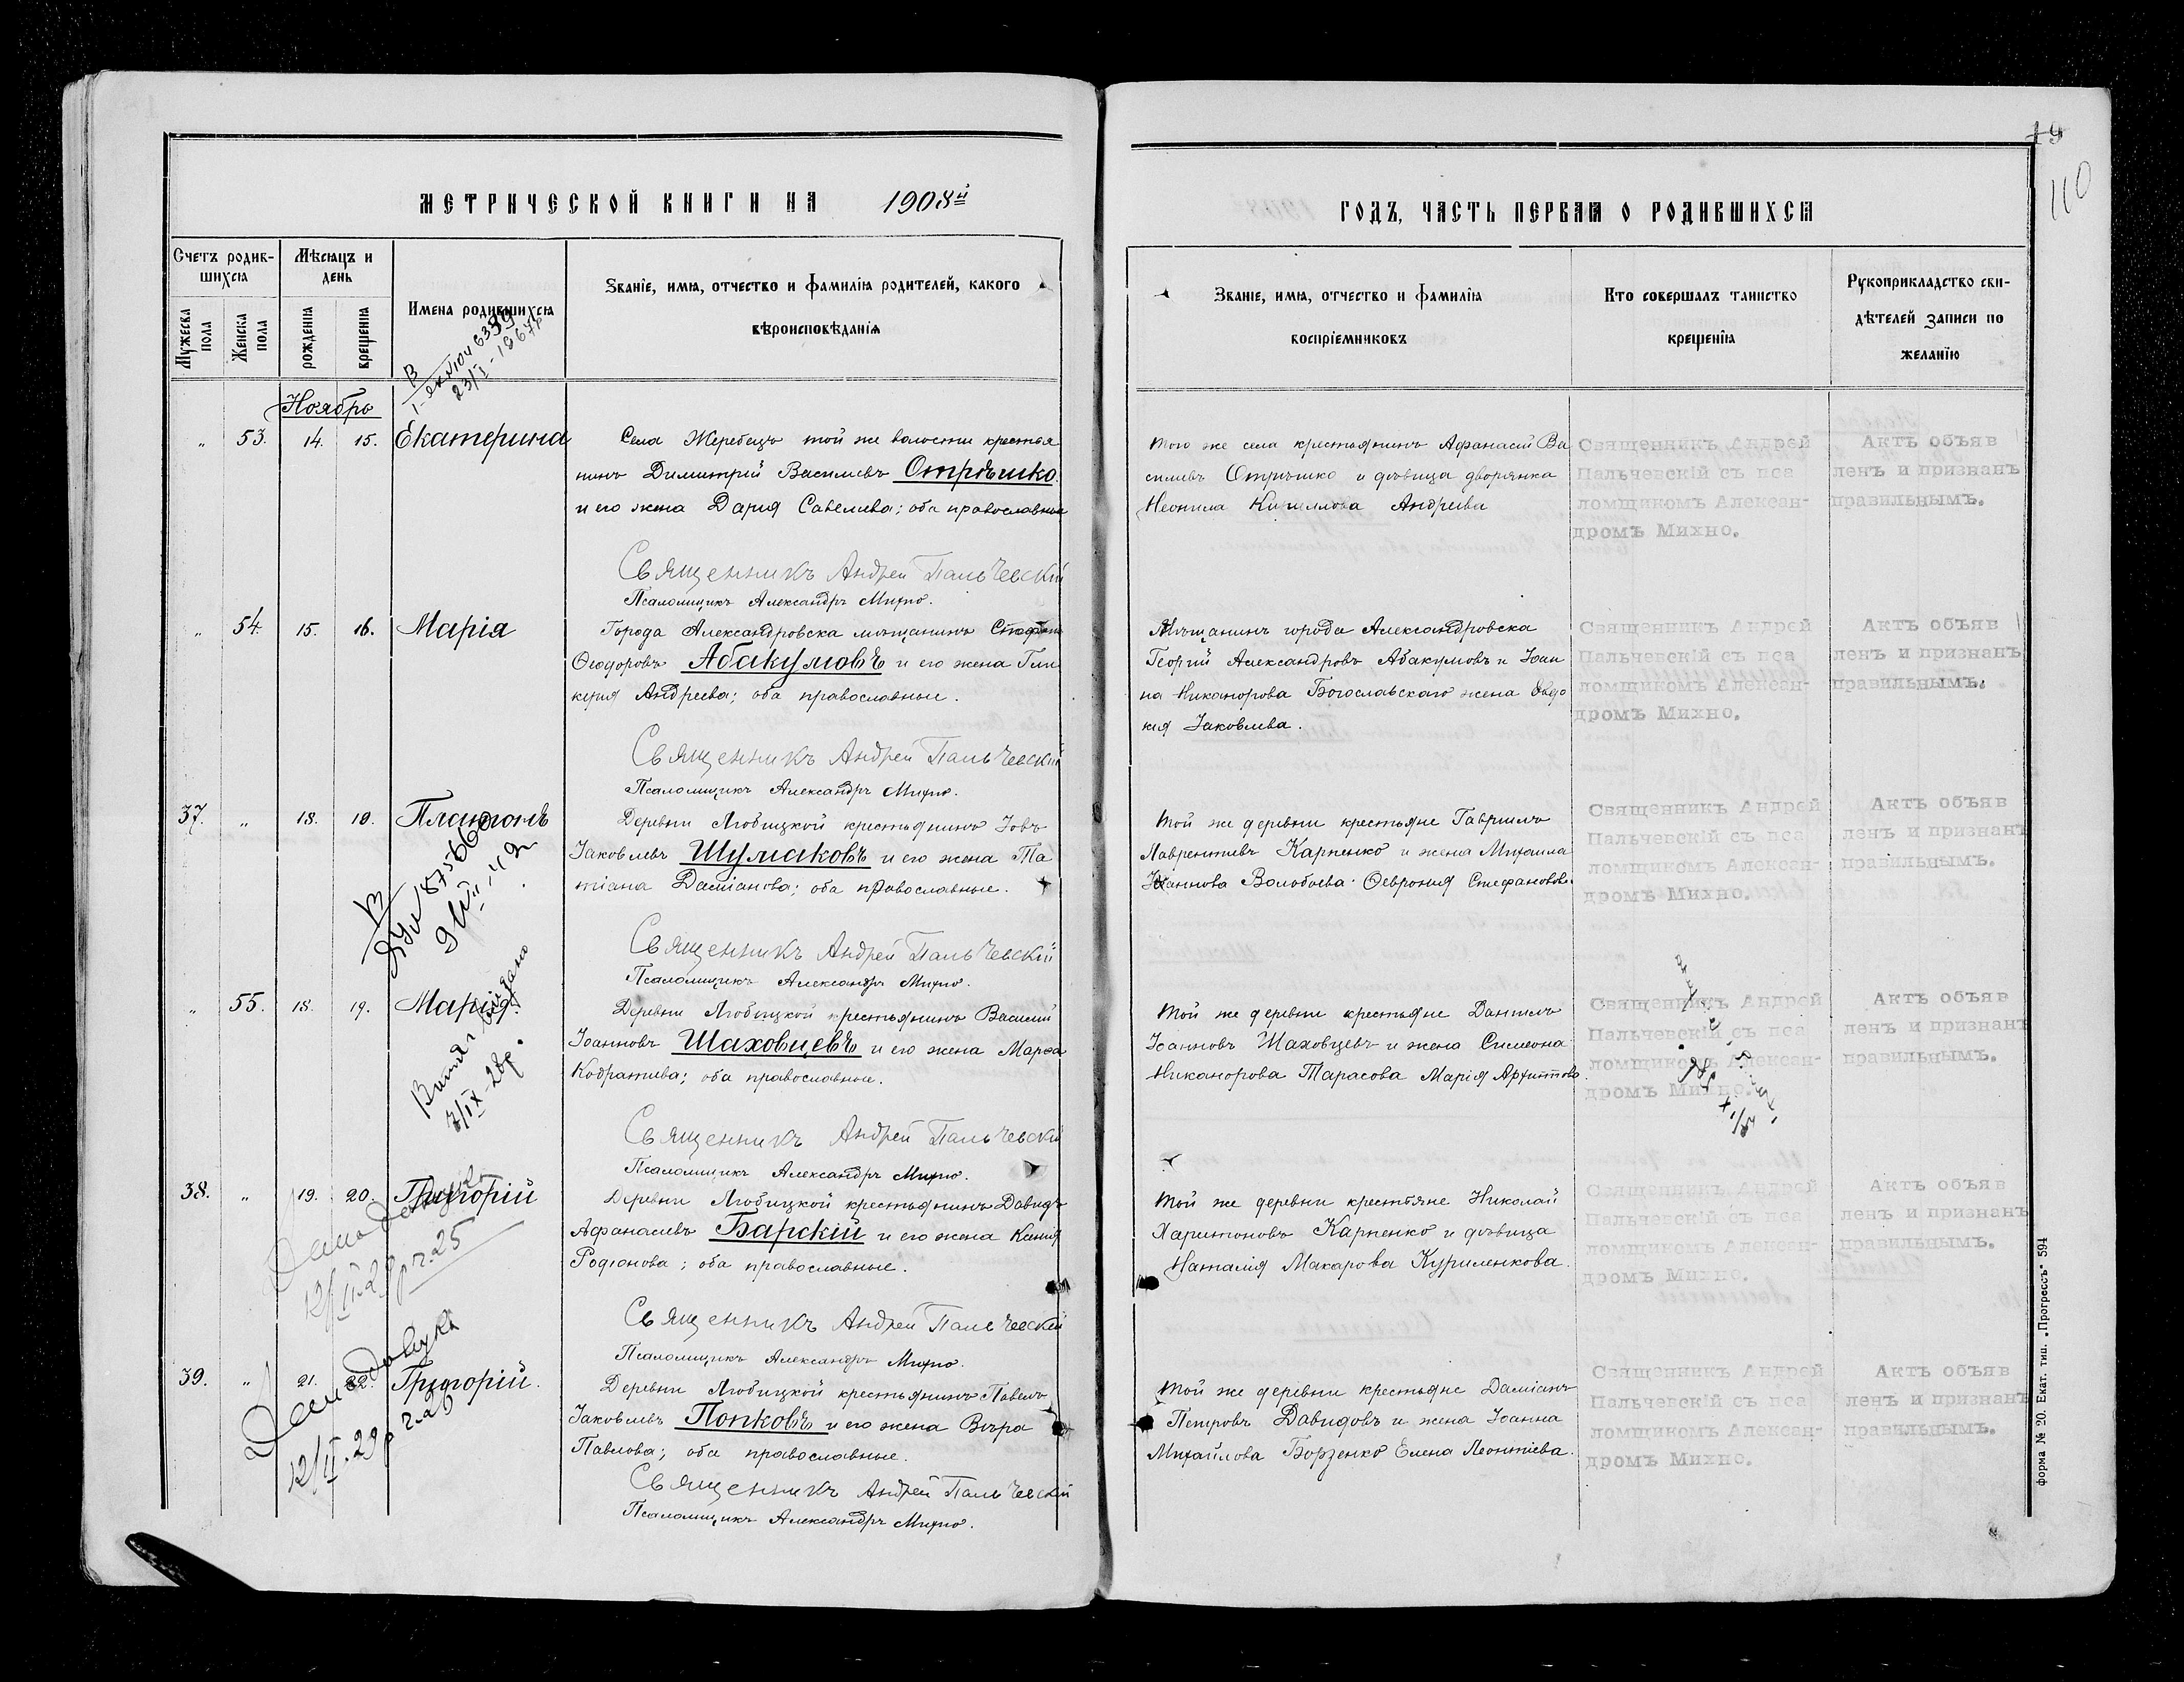 19
110
МЕТРИЧЕСКОЙ КНИГИ НА 1908й
ГОДЪ, ЧАСТЬ ПЕРВАЯ О РОДИВШИХСЯ
Счетъ родившихся
Мужеска пола
Женска пола
Мѣсяцъ и день
рожденія
крещенія
Имена родившихся
Званіе, имя, отчество и фамилія родителей, какого
вѣроисповѣданія
Званіе, имя, отчество и фамилія
воспріемниковъ
Кто совершалъ таинство
крещенія
Рукоприкладство сви-
дѣтелей записи по
желанію
Ноябрь
„ 53. 14. 15. Екатерина
Села Жеребецъ той же волости крестья
нинъ Димитрій Василиевъ Отрѣшко
и его жена Дарія Савелиева; оба православные
Священникъ Андрей Пальчевскій
Псаломщикъ Александръ Михно.
Того же села крестьянинъ Афанасій Ва
силиевъ Отрѣшко и дѣвица дворянка
Неонила Андреева
Священникъ Андрей
Пальчевскій съ пса
ломщикомъ Алексан-
дромъ Михно.
Актъ объяв
ленъ и признанъ
правильнымъ.
„ 54. 15. 16. Марія
Города Александровска мѣщанинъ
Ѳеодоровъ Абакумовъ и его жена Гли
керия Андреева; оба православные.
Священникъ Андрей Пальчевскій
Псаломщикъ Александръ Михно.
Мѣщанинъ города Александровска
Георгий Александровъ Абакумовъ и Іоан
на Никанорова Богославскаго жена Евдо
кия Іаковлева.
Священникъ Андрей
Пальчевскій съ пса
ломщикомъ Алексан-
дромъ Михно.
Актъ объяв
ленъ и признанъ
правильнымъ.
37. „ 18. 19. Платонъ
Деревни Любицкой крестьянинъ Іовъ
Іаковлевъ Шумаковъ и его жена Та
тіана Даміанова; оба православные.
Священникъ Андрей Пальчевскій
Псаломщикъ Александръ Михно.
Той же деревни крестьяне Гавриилъ
Лаврентиевъ Карпенко и жена Михаила
Іоаннова Волобоева Ѳеврония Стефановова
Священникъ Андрей
Пальчевскій съ пса
ломщикомъ Алексан-
дромъ Михно.
Актъ объяв
ленъ и признанъ
правильнымъ.
„ 55. 18. 19. Марія
Деревни Любицкой крестьянинъ Василий
Іоанновъ Шаховцевъ и его жена Марѳа
Кодратиева; оба православные.
Священникъ Андрей Пальчевскій
Псаломщикъ Александръ Михно.
Той же деревни крестьяне Даниилъ
Іоанновъ Шаховцевъ и жена Симеона
Никанорова Тарасова Марія
Священникъ Андрей
Пальчевскій съ пса
ломщикомъ Алексан-
дромъ Михно.
Актъ объяв
ленъ и признанъ
правильнымъ.
38. „ 19. 20. Григорій
Деревни Любицкой крестьянинъ Давидъ
Афанасиевъ Барскій и его жена Ксения
Родіонова; оба православные.
Священникъ Андрей Пальчевскій
Псаломщикъ Александръ Михно.
Той же деревни крестьяне Николай
Харитоновъ Карпенко и дѣвица
Наталия Макарова Куриленкова.
Священникъ Андрей
Пальчевскій съ пса
ломщикомъ Алексан-
дромъ Михно.
Актъ объяв
ленъ и признанъ
правильнымъ.
39. „ 21. 22. Григорій.
Деревни Любицкой крестьянинъ Павелъ
Іаковлевъ Попковъ и его жена Вѣра
Павлова; оба православные.
Священникъ Андрей Пальчевскій
Псаломщикъ Александръ Михно.
Той же деревни крестьяне Даміанъ
Петровъ Давидовъ и жена Іоанна
Михайлова Борзенко Елена Леонтіева.
Священникъ Андрей
Пальчевскій съ пса
ломщикомъ Алексан-
дромъ Михно.
Актъ объяв
ленъ и признанъ
правильнымъ.
Форма № 20. Екат. тип. „Прогрессъ“ 594